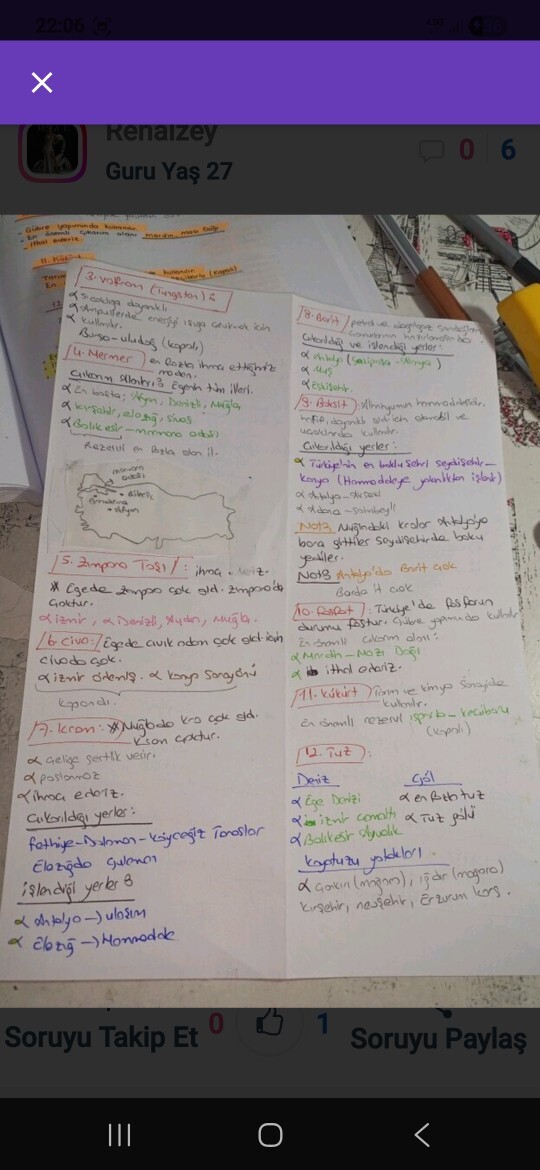 22:06
Renaizey
Guru Yaş 27
0 6
- Gübre yapımında kullanılır.
- En önemli çıkarım alanı mardin, mazı dağı
- ithal ederiz.
3. Volfram (Tungsten):
α sıcaklığa dayanıklı
α Ampullerde enerjiyi ışığa çevirmek için
α kullanılır.
Bursa - uludağ (kapalı)
4. Mermer en fazla ihraç ettiğimiz
maden.
Çıkarım Alanları: Egenin tüm illeri.
α En başta; Afyon, Denizli, Muğla
α kırşehir, elazığ, sivas
α Balıkesir - marmara adası
Rezervi en fazla olan il.
marmara
adası
Bilecik
Afyon
5. Zımpara Taşı: ihraç
* Egede zımpara çok gld. zımparada
çoktur.
α izmir, α Denizli, Aydın, Muğla.
6. Civa: Egede civık adam çok gld için
civada çok.
α izmir ödemiş. α konya Sarayönü
kapandı.
7. Krom: * Muğlada kro çok gld.
krom çoktur.
α Çeliğe sertlik verir.
α paslanmaz
α ihraç ederiz.
Çıkarıldığı yerler:
Fethiye - Dalaman - Köyceğiz Toroslar
Elazığda Guleman
işlendiği yerler:
α Antalya → ulaşım
α Elazığ →
8. Barit / petrol ve doğalgaz sondajları
Çıkarıldığı ve işlendiği yerler:
α Antalya
α Muş
α Eskişehir.
9. Boksit: Alminyumun hammaddesidir.
hafif, dayanıklı olduğu için otomobil ve
uçaklarda kullanılır.
Çıkarıldığı yerler:
α Türkiye'nin en boklu şehri seydişehir -
konya (Hammaddeye yakınlıktan işlenir)
α Antalya - Akseki
α Adana - Saimbeyli
Not: Muğladaki krolar Antalya'ya
bara gittiler seydişehirde boku
yediler.
Not: Antalya'da Barit çok
Barda it çok
10. Fosfat: Türkiye'de fosforun
durumu fostur. Gübre yapımında kullanılır
En önemli çıkarım alanı:
α Mardin - Mazı Dağı
α ithal ederiz.
11. Kükürt: Tarım ve kimya Sanayide
kullanılır.
En önemli rezervi ısparta - keçiborlu
(kapalı)
12. Tuz:
Deniz Göl
α Ege Denizi α en fazla tuz
α izmir çamaltı α Tuz gölü
α Balıkesir Ayvalık
Kayatuzu yatakları
α Çankırı (mağara), Iğdır (mağara)
kırşehir, nevşehir, Erzurum kars.
Soruyu Takip Et 0 1 Soruyu Paylaş